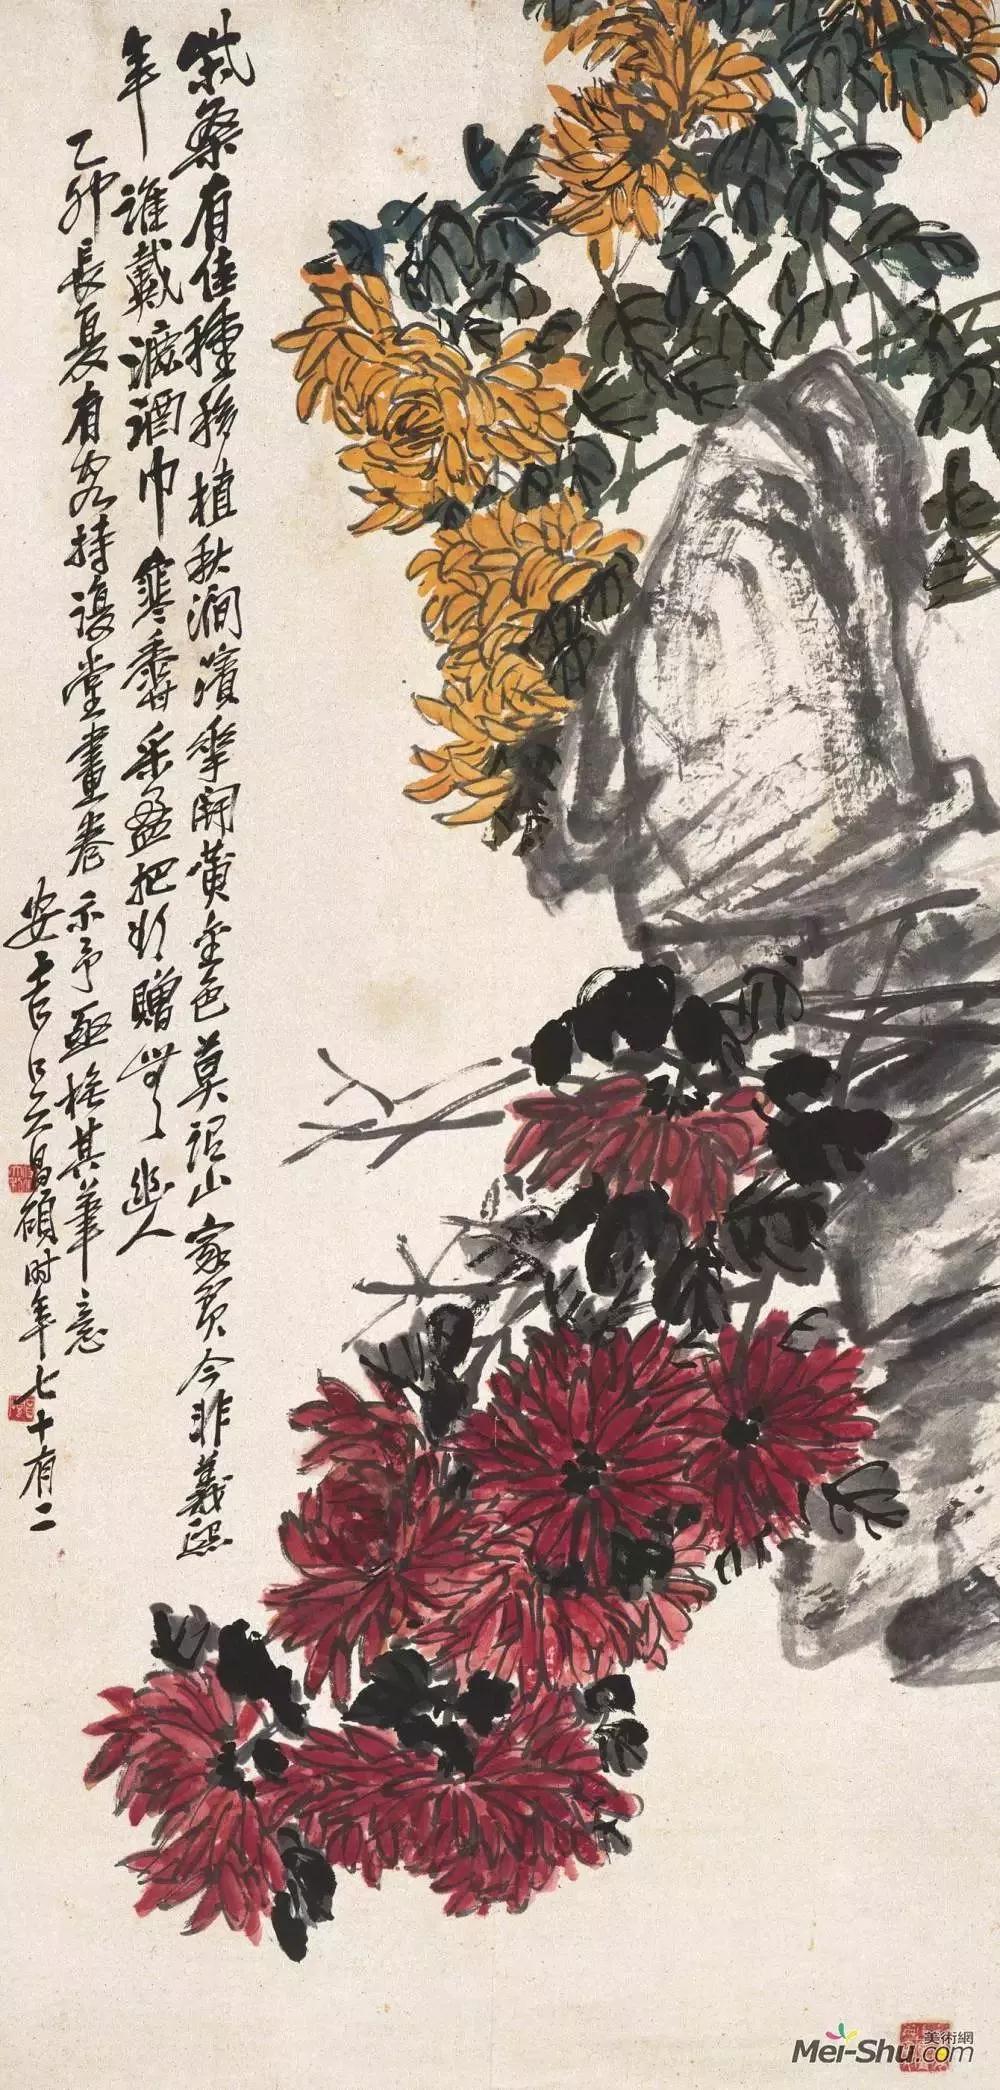 柴桑有佳種移植秋澗濱華開黃金色莫山家貧今非義熙
年誰戴漉酒巾寒香采盈把將贈幽人
乙卯長夏有客持復堂畫卷示予亟橅其筆意
安吉吳昌碩时年七十有二
美術網
Mei-Shu.com